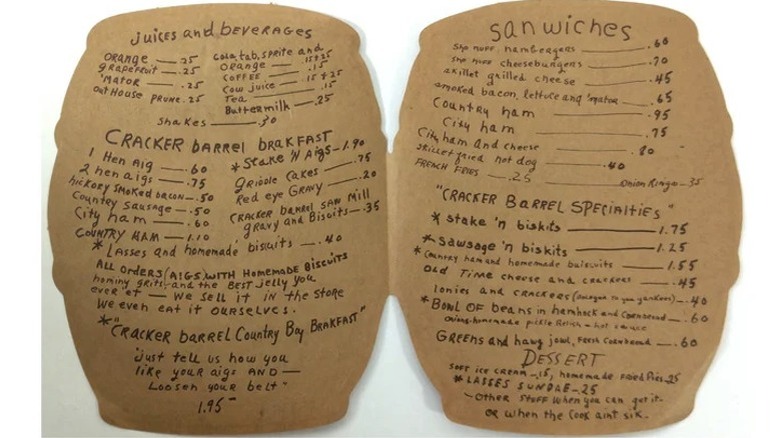 juices and beverages
ORANGE — .25
grapefruit — .25
'Mator — .25
out House prune .25
Cola, tab, sprite and
orange — .15+25
coffee — .15
Cow juice — .15+25
Tea — .15
Buttermilk — .25
shakes — .30
CRACKER barrel brakfast
1 Hen Aig — .60
2 hen aigs — .75
hickory smoked bacon — .50
Country sausage — .50
City ham — .60
COUNTRY HAM — 1.10
* Stake 'N Aigs — 1.90
Griddle Cakes — .75
Red eye Gravy — .20
CRACKER barrel SAW Mill
gravy and Biscuits — .35
* Lasses and homemade biscuits — .40
ALL orders (Aigs) with Homemade Biscuits
hominy grits, and the BEST jelly you
ever et — We sell it in the store
We even eat it ourselves.
* "Cracker barrel Country Boy Brakfast"
just tell us how you
like your aigs AND —
Loosen your belt"
1.95
sanwiches
sho nuff, hambeagers — .60
sho nuff cheeseburgers — .70
skillet grilled cheese — .45
smoked bacon, lettuce and 'mator — .65
Country ham — .95
City ham — .75
City ham and cheese — .80
skillet fried hot dog — .40
FRENCH FRIES — .25
Onion Rings — 35
"CRACKER BARREL SPECIALTIES"
* Stake 'n biskits — 1.75
* Sausage 'n biskits — 1.25
* Country ham and homemade buiscuits — 1.55
Old Time cheese and crackers — .45
lonies and crackers (bologna to you yankees) — .40
* BOWL OF beans in hamhock and cornbread — .60
onions-homemade pickle Relish - hot sauce
Greens and hawg jowl, fresh cornbread — .60
DESSERT
soft ice cream — .15, homemade fried Pies .25
* LASSES SUNDAE — 25
- Other stuff when you can get it.
or when the Cook aint sik.